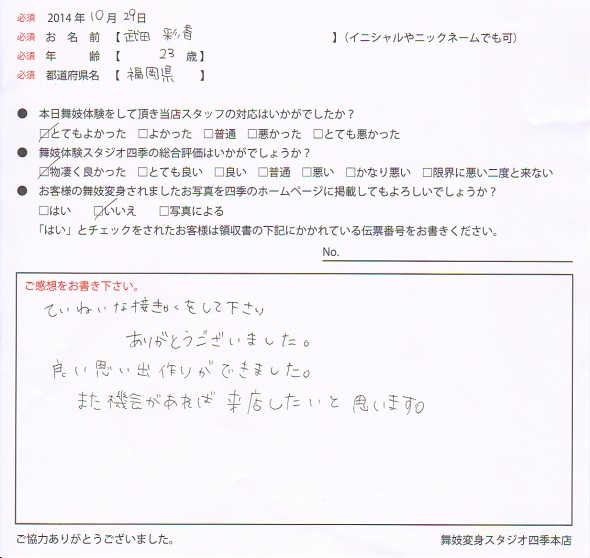 必須 2014年10月29日
必須 お名前【武田 彩香 】(イニシャルやニックネームでも可)
必須 年 齢【 23 歳】
必須 都道府県名【福岡県 】
● 本日舞妓体験をして頂き当店スタッフの対応はいかがでしたか?
□とてもよかった □よかった □普通 □悪かった □とても悪かった
● 舞妓体験スタジオ四季の総合評価はいかがでしょうか?
□物凄く良かった □とても良い □良い □普通 □悪い □かなり悪い □限界に悪い二度と来ない
● お客様の舞妓変身されましたお写真を四季のホームページに掲載してもよろしいでしょうか?
□はい □いいえ □写真による
「はい」とチェックをされたお客様は領収書の下記にかかれている伝票番号をお書きください。
No.
ご感想をお書き下さい。
ていねいな接きゃくをして下さり
ありがとうございました。
良い思い出作りができました。
また機会があれば来店したいと思います。
ご協力ありがとうございました。
舞妓変身スタジオ四季本店